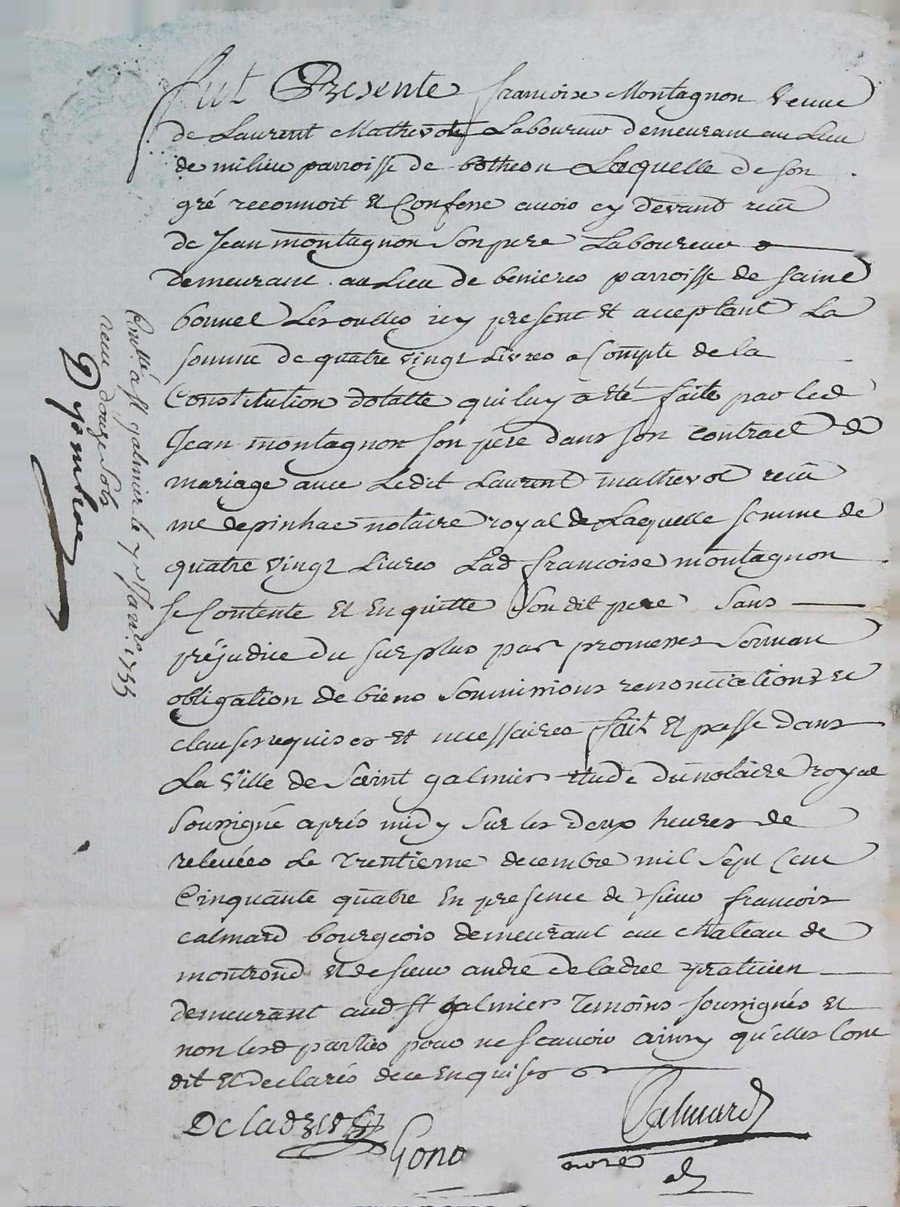 fut Presente francoise Montagnon veuve
de Laurent Mathevot Laboureur demeurant au Lieu
de milieu parroisse de botheon Laquelle de son
gré reconnoit et Confesse avoir cy devant receu
de Jean montagnon son pere Laboureur
demeurant au Lieu de benieres parroisse de saint
bonnet Les oulles icy present et acceptant La
somme de quatre vingt Livres a Compte de la
Constitution dotalle qui luy a été faite par led
Jean montagnon son père dans son contract de
mariage avec Ledit Laurent mathevot receu
me depinhac notaire royal de Laquelle somme de
quatre vingt Livres Lad francoise montagnon
se Contente et En quitte son dit pere sans
préjudice du surplus par promesses serment
obligation de biens soumissions renonciations et
clauses requises et necessaires fait et passé dans
La ville de saint galmier etude du notaire royal
soussigné aprés midy sur les deux heures de
relevées Le trentieme decembre mil sept Cent
Cinquante quatre En presence de sieur francois
calmard bourgeois demeurant au chateau de
montrond et de sieur andre deladree praticien
demeurant aud st galmier temoins soussignés et
non lesd parties pour ne scavoir ainsy qu'elles L'ont
dit et declarés de ce Enquises
Deladree
Calmard
Gono
nore
Conllé a st galmier le 7 Janv. 1755
receu douze sols
Depinhac